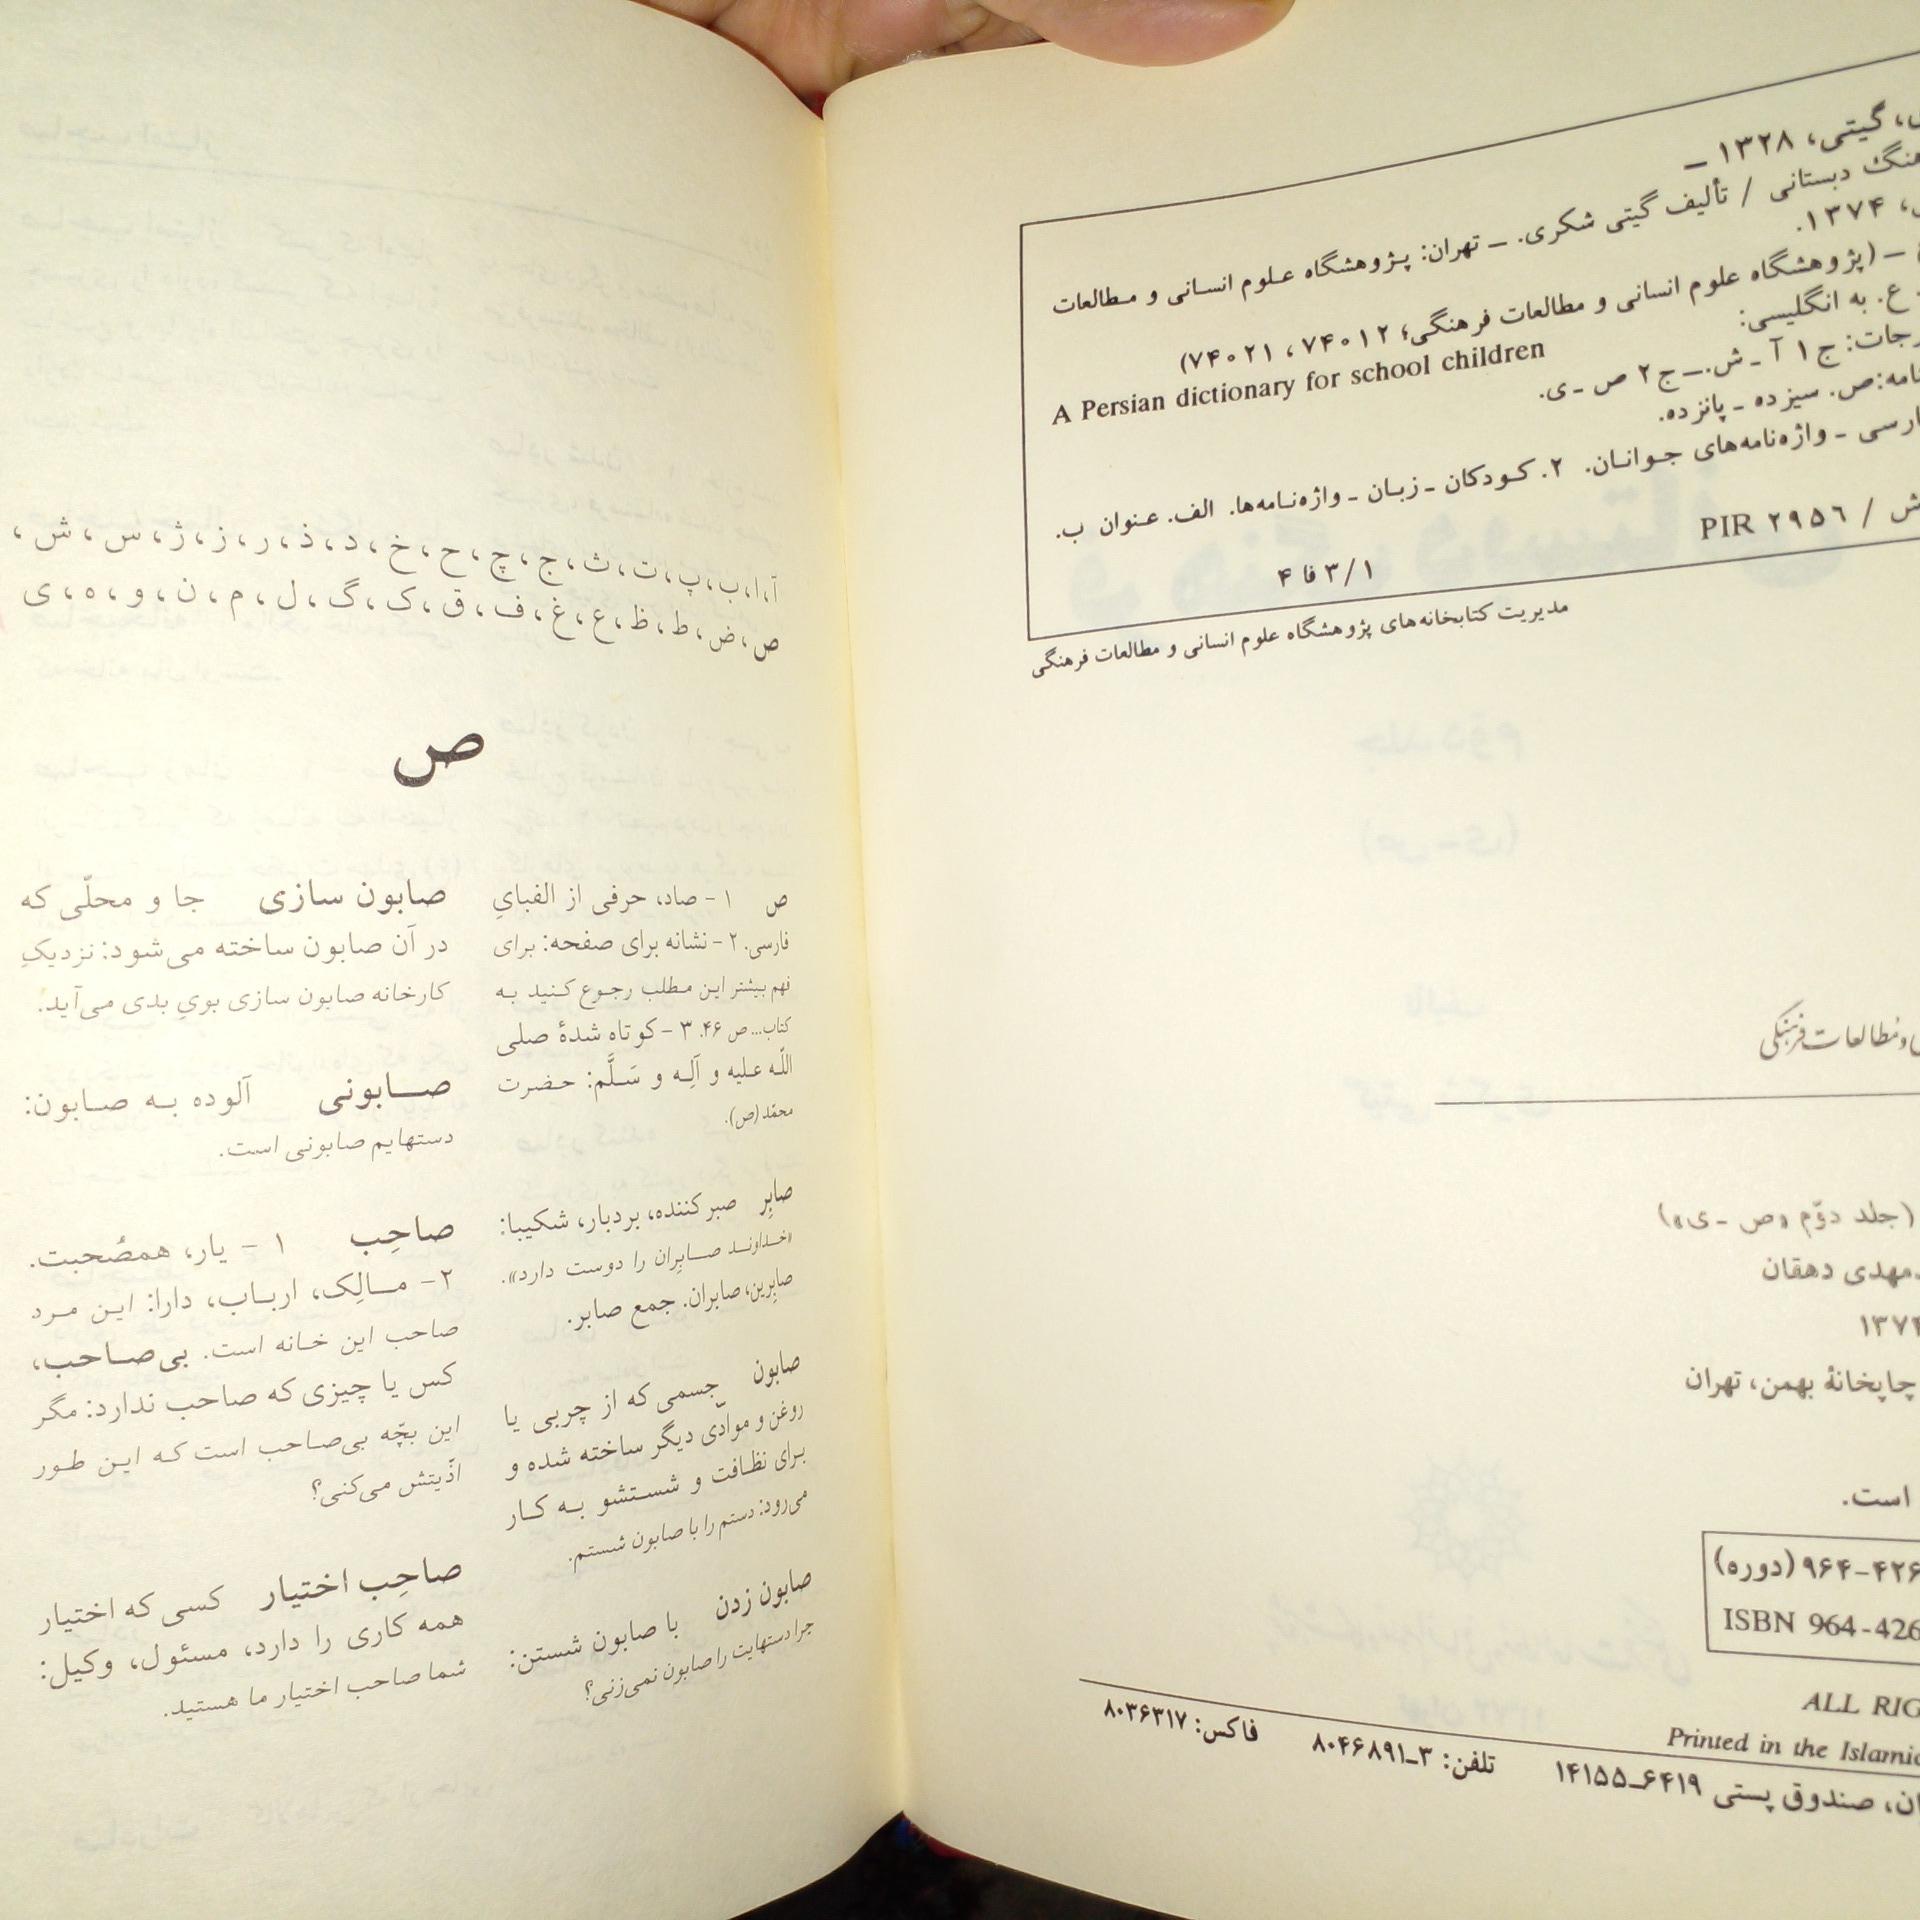 گیتی، ۱۳۲۸ –
دبستانی / تألیف گیتی شکری. – تهران: پژوهشگاه علوم انسانی و مطالعات
۱۳۷۴.
– (پژوهشگاه علوم انسانی و مطالعات فرهنگی؛ ۷۴۰۱۲، ۷۴۰۲۱)
ع. به انگلیسی:
A Persian dictionary for school children
ج ۱ آ - ش. – ج ۲ ص - ی.
ص. سیزده - پانزده.
واژه‌نامه‌های جوانان. ۲. کودکان - زبان - واژه‌نامه‌ها. الف. عنوان ب.
ش / ۲۹۵۶ PIR
۳/۱ فا ۴
مدیریت کتابخانه‌های پژوهشگاه علوم انسانی و مطالعات فرهنگی
و مطالعات فرهنگی
(جلد دوّم «ص - ی»)
دهقان
چاپخانهٔ بهمن، تهران
است.
(دوره)
ISBN 964-426
ALL
Printed in the
صندوق پستی ۶۴۱۹–۱۴۱۵۵ تلفن: ۳–۸۰۴۶۸۹۱ فاکس: ۸۰۳۶۳۱۷
آ، ا، ب، پ، ت، ث، ج، چ، ح، خ، د، ذ، ر، ز، ژ، س، ش،
ص، ض، ط، ظ، ع، غ، ف، ق، ک، گ، ل، م، ن، و، ه، ی
ص
ص ۱ - صاد، حرفی از الفبایِ
فارسی. ۲ - نشانه برای صفحه: برای
فهم بیشتر این مطلب رجوع کنید به
کتاب... ص ۴۶. ۳ - کوتاه شدهٔ صلی
اللّه علیه و آلِه و سَلَّم: حضرت
محمّد (ص).
صابِر صبر کننده، بردبار، شکیبا:
«خداوند صابِران را دوست دارد».
صابِرین، صابران. جمع صابر.
صابون جسمی که از چربی یا
روغن و موادّی دیگر ساخته شده و
برای نظافت و شستشو به کار
می‌رود: دستم را با صابون شستم.
صابون زدن با صابون شستن:
چرا دستهایت را صابون نمی‌زنی؟
صابون سازی جا و محلّی که
در آن صابون ساخته می‌شود: نزدیکِ
کارخانه صابون سازی بویِ بدی می‌آید.
صابونی آلوده به صابون:
دستهایم صابونی است.
صاحِب ۱ - یار، همصُحبت.
۲- مالِک، ارباب، دارا: این مرد
صاحب این خانه است. بی‌صاحب،
کس یا چیزی که صاحب ندارد: مگر
این بچّه بی‌صاحب است که این طور
اذّیتش می‌کنی؟
صاحِب اختیار کسی که اختیار
همه کاری را دارد، مسئول، وکیل:
شما صاحب اختیار ما هستید.